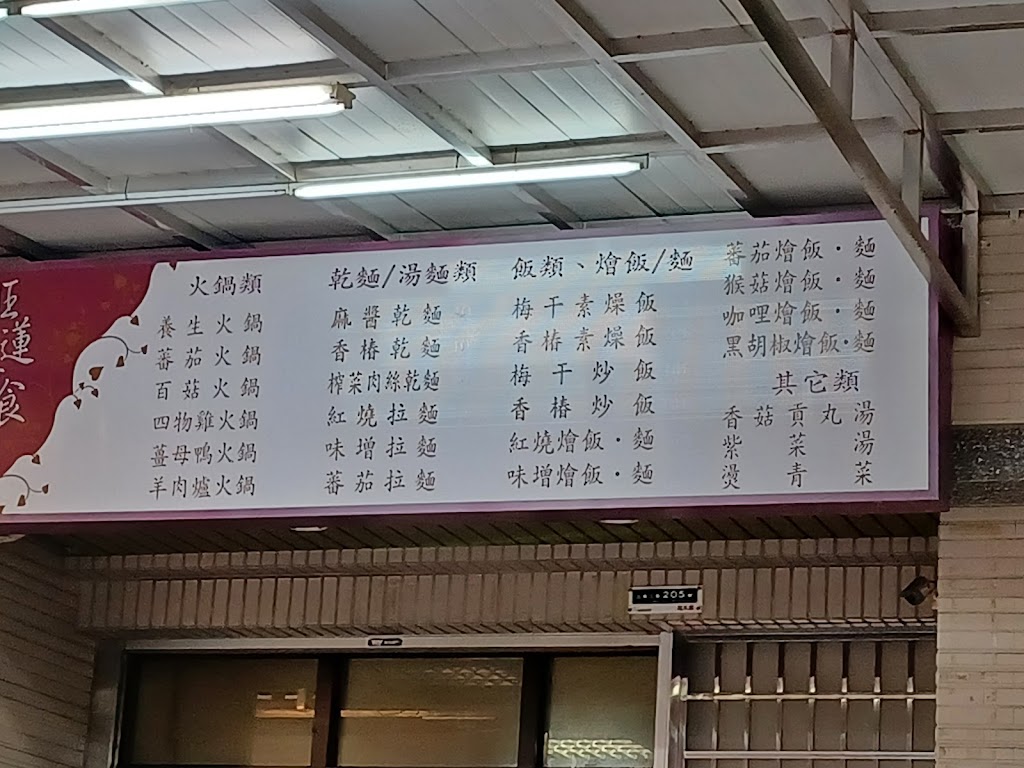 蓮
食
火鍋類
養生火鍋
蕃茄火鍋
百菇火鍋
四物雞火鍋
薑母鴨火鍋
羊肉爐火鍋
乾麵/湯麵類
麻醬乾麵
香椿乾麵
榨菜肉絲乾麵
紅燒拉麵
味增拉麵
蕃茄拉麵
飯類、燴飯/麵
梅干素燥飯
香椿素燥飯
梅干炒飯
香椿炒飯
紅燒燴飯·麵
味增燴飯·麵
蕃茄燴飯·麵
猴菇燴飯·麵
咖哩燴飯·麵
黑胡椒燴飯·麵
其它類
香菇貢丸湯
紫菜湯
燙青菜
205